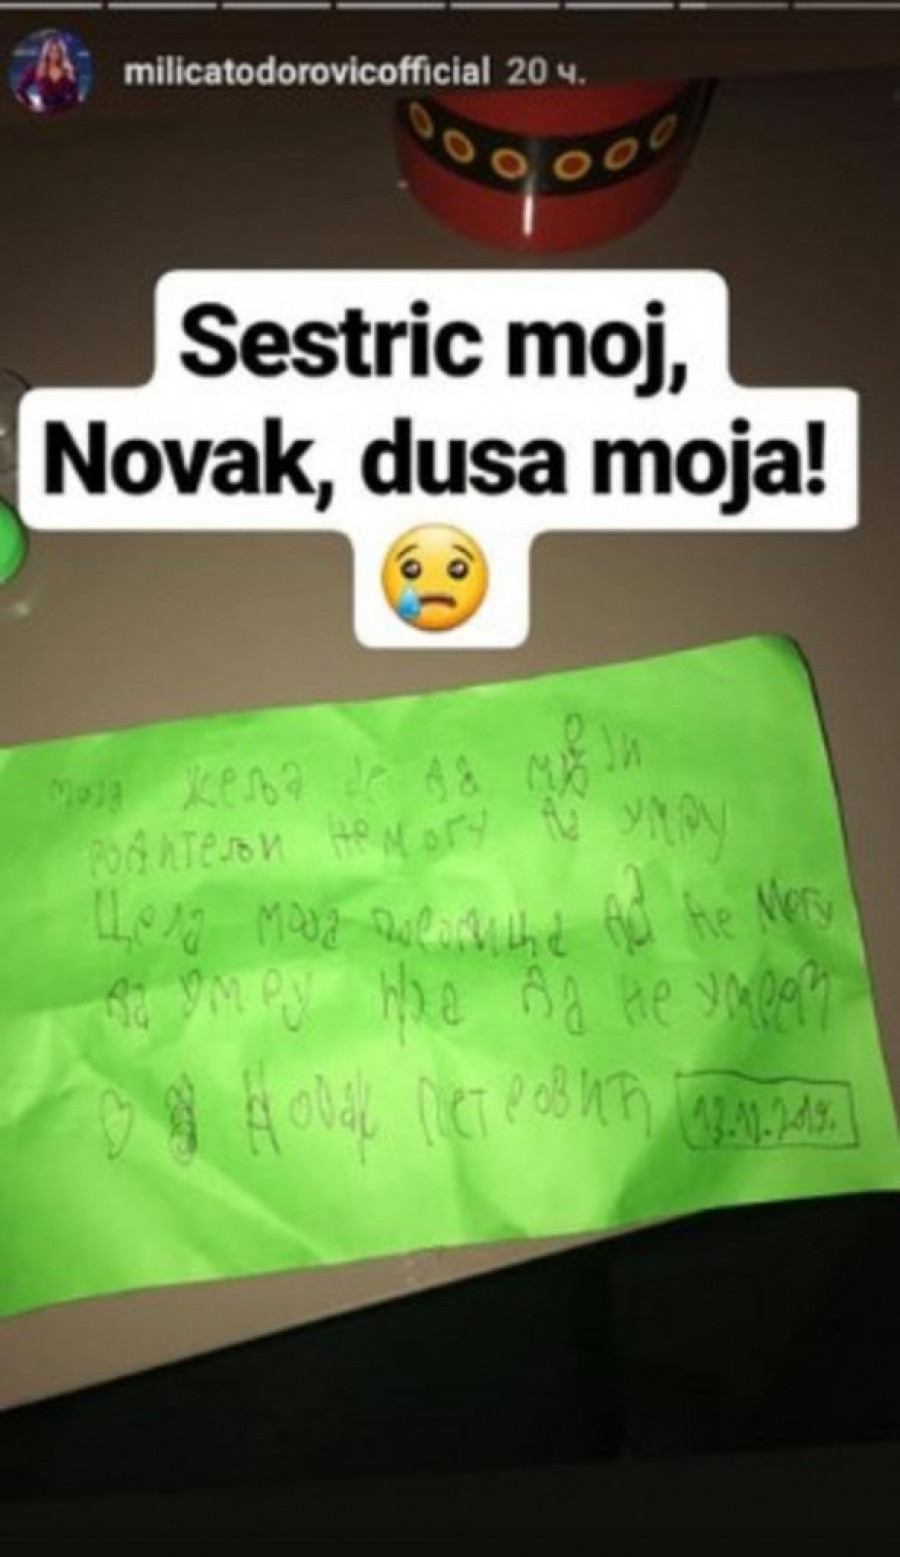 milicatodorovicofficial 20 ч.
Sestric moj,
Novak, dusa moja!
😢
моја жеља је да моји
родитељи немогу да умру
Цела моја породица да не могу
да умру и ја да не умрем
♡ Новак Петровић 13.11.2019.